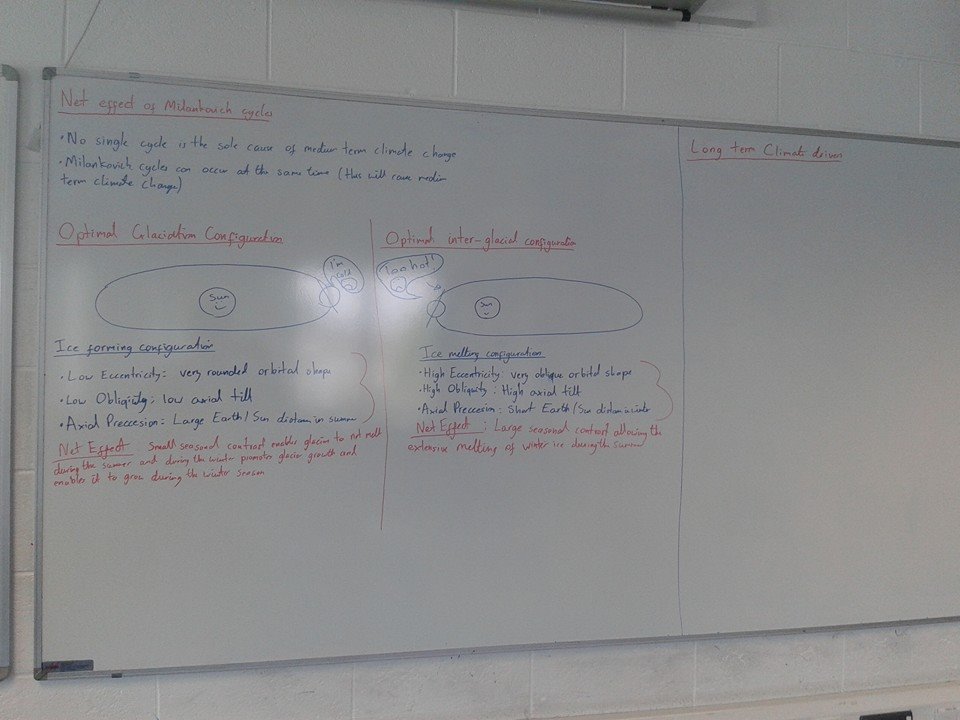 Net effect of Milankovich cycles
• No single cycle is the sole cause of medium term climate change
• Milankovich cycles can occur at the same time (this will cause medium
term climate change)
Optimal Glaciation Configuration
I'm cold
Sun
Ice forming configuration
• Low Eccentricity: very rounded orbital shape
• Low Obliquity: low axial tilt
• Axial Preccesion: Large Earth/Sun distance in summer
Net Effect Small seasonal contrast enables glaciers to not melt
during the summer and during the winter promotes glacier growth and
enables it to grow during the winter season
Optimal inter-glacial configuration
Too hot!
Sun
Ice melting configuration
• High Eccentricity: very oblique orbital shape
• High Obliquity: High axial tilt
• Axial Preccesion: Short Earth/Sun distance in winter
Net Effect: Large seasonal contrast allowing the
extensive melting of winter ice during the summer
Long term Climate driven